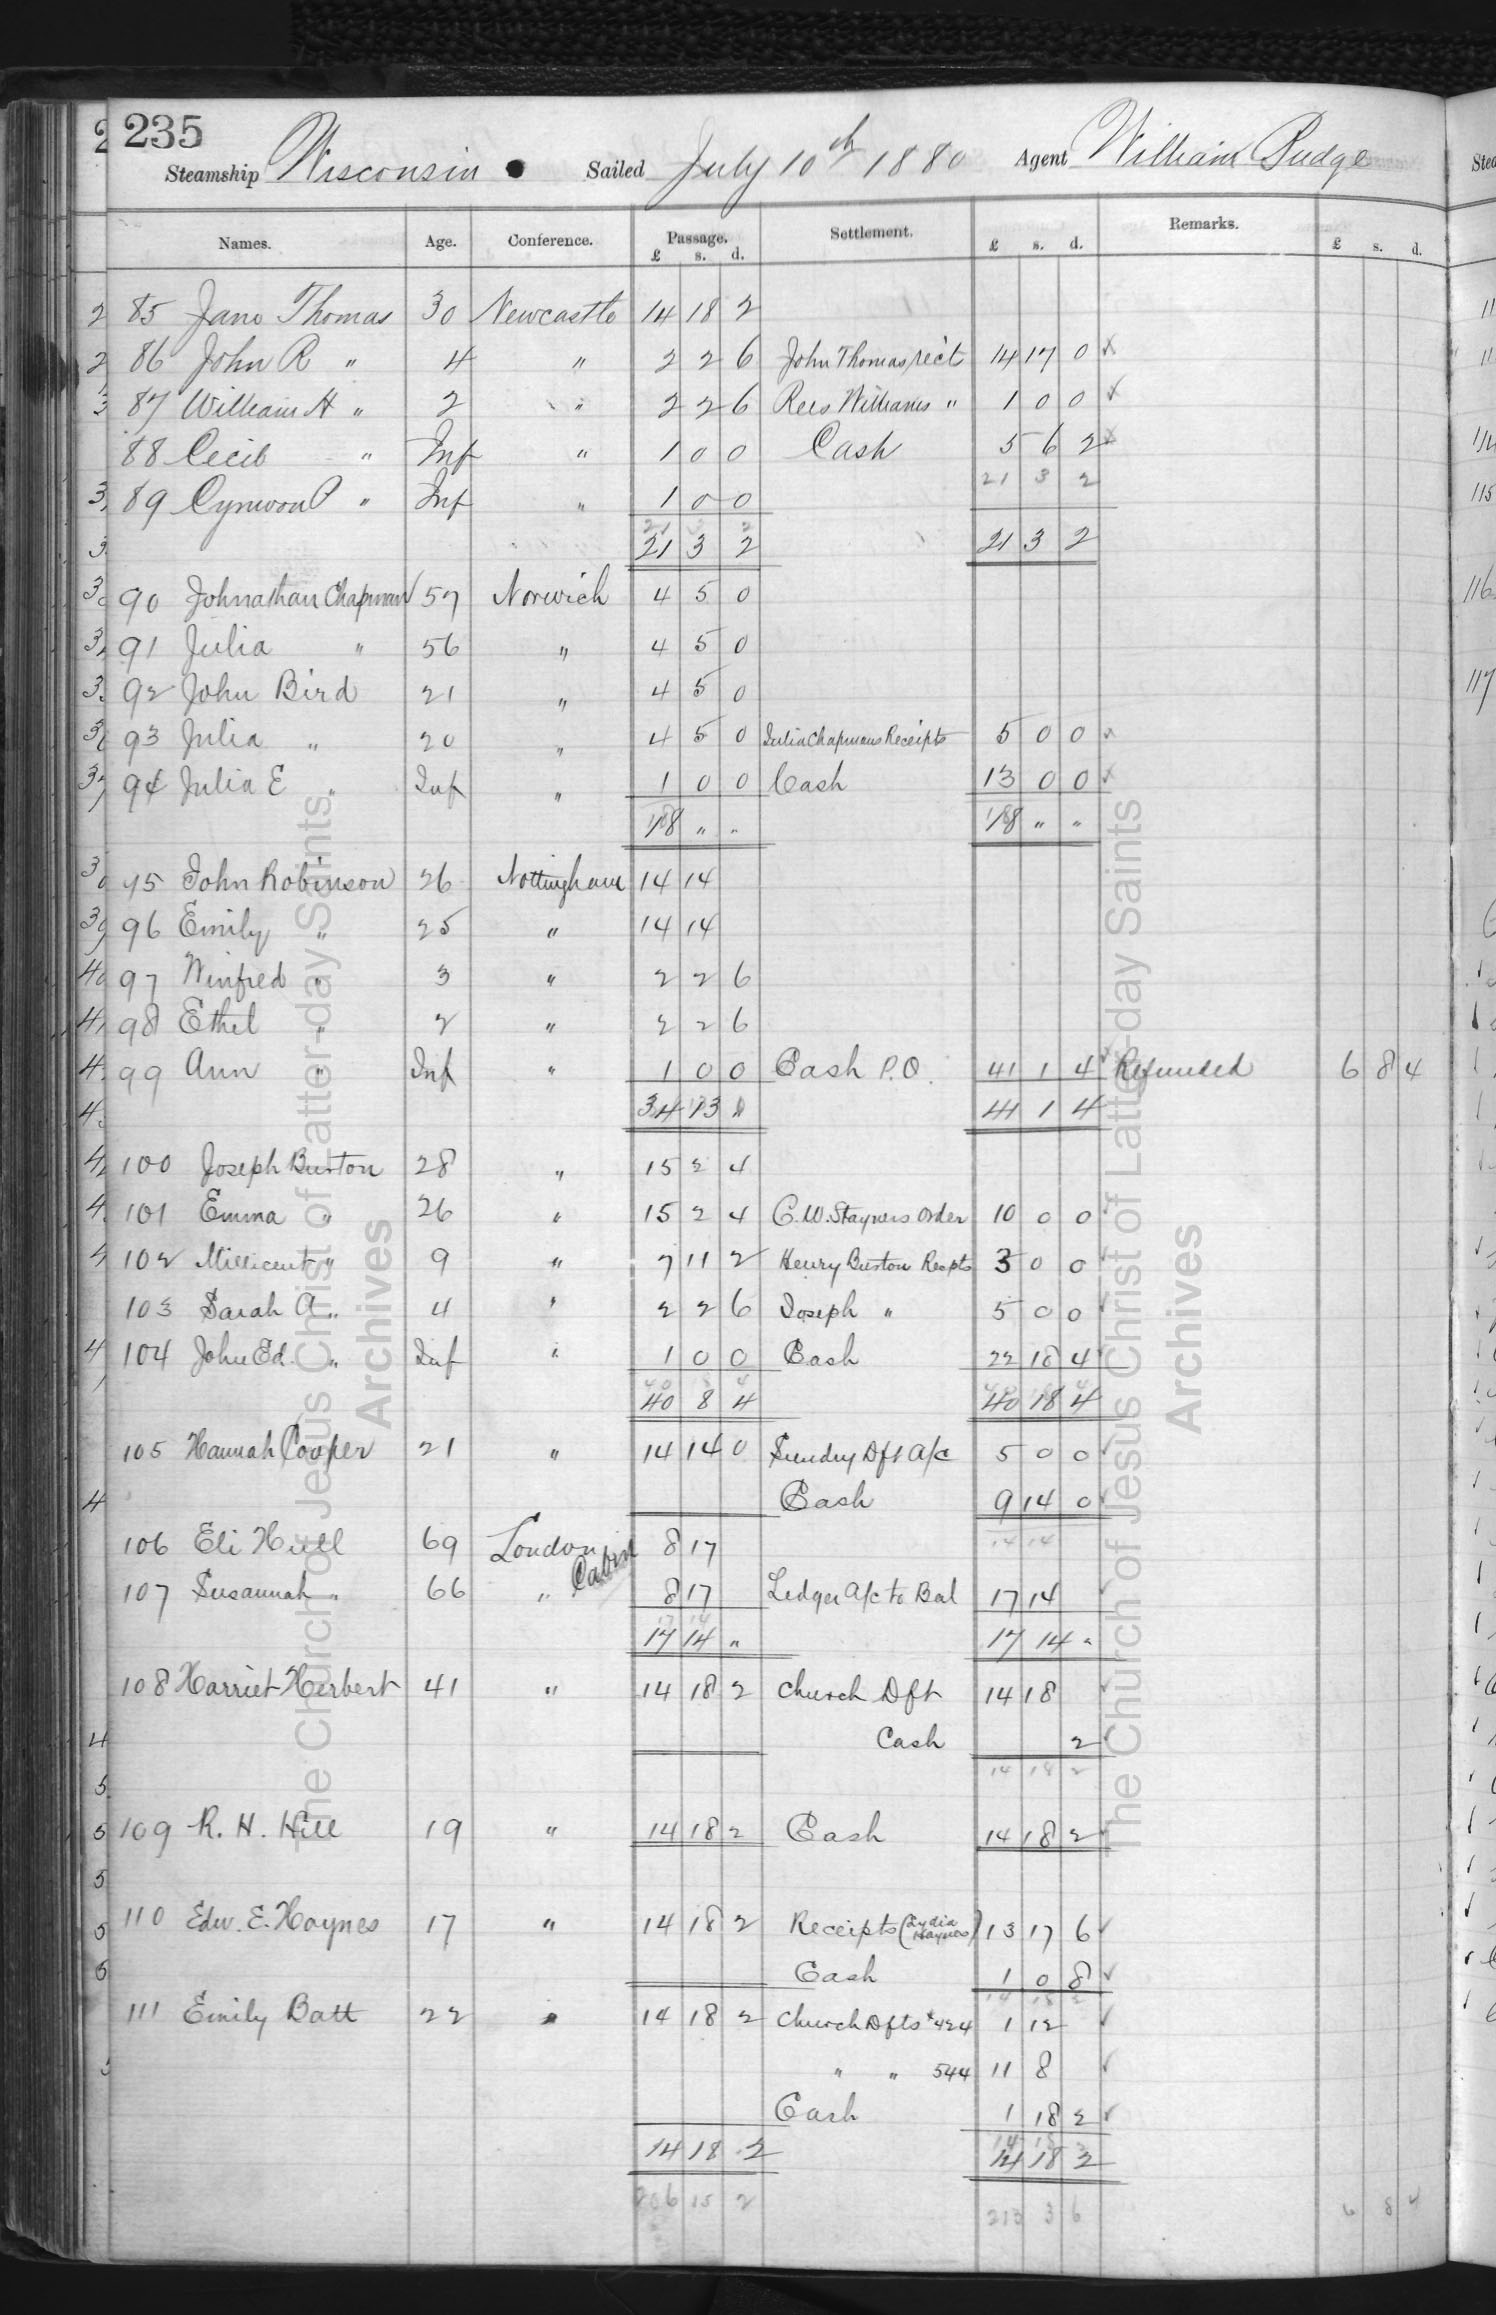 235
Steamship Wisconsin Sailed July 10th 1880 Agent William Budge
Names. Age. Conference. Passage. Settlement. Remarks.
£ s. d. £ s. d. £ s. d.
85 Jane Thomas 30 Newcastle 14 18 2
86 John R " 4 " 2 2 6 John Thomas rect 14 17 0 x
87 William H " 2 " 2 2 6 Rees Williams " 1 0 0 ✓
88 Cecil " Inf " 1 0 0 Cash 5 6 2 x
21 3 2
89 " Inf " 1 0 0
21 3 2
21 3 2 21 3 2
90 Johnathan Chapman 57 Norwich 4 5 0
91 Julia " 56 " 4 5 0
92 John Bird 21 " 4 5 0
93 Julia " 20 " 4 5 0 Julia Chapmans Receipts 5 0 0 x
94 Julia E " Inf " 1 0 0 Cash 13 0 0 x
18 " " 18 " "
95 John Robinson 26 Nottingham 14 14
96 Emily " 25 " 14 14
97 Winfred " 3 " 2 2 6
98 Ethel " 2 " 2 2 6
99 Ann " Inf " 1 0 0 Cash P.O. 41 1 4 ✓ Refunded 6 8 4
34 13 " 41 1 4
100 Joseph Burton 28 " 15 2 4
101 Emma " 26 " 15 2 4 C. W. Stayners Order 10 0 0
102 Millicent " 9 " 7 11 2 Henry Burton Recpts 3 0 0
103 Sarah A " 4 " 2 2 6 Joseph " 5 0 0
104 John Ed. " Inf " 1 0 0 Cash 22 18 4
40 8 4 40 18 4
105 Hannah Cooper 21 " 14 14 0 Sundry Dft A/c 5 0 0 ✓
Cash 9 14 0 ✓
14 14
106 Eli Hull 69 London 8 17
Cabin
107 Susannah " 66 " 8 17 Ledger A/c to Bal 17 14
17 14
17 14 " 17 14 "
108 Harriet Herbert 41 " 14 18 2 Church Dft 14 18
Cash 2
14 18 2
109 R. H. Hill 19 " 14 18 2 Cash 14 18 2
110 Edw. E. Haynes 17 " 14 18 2 Receipts (Lydia Haynes) 13 17 6 ✓
Cash 1 0 8 ✓
14 18 2
111 Emily Batt 22 " 14 18 2 Church Dfts # 424 1 12 ✓
" " 544 11 8 ✓
Cash 1 18 2 ✓
14 18 2
14 18 2 14 18 2
206 15 2 213 3 6 6 8 4
The Church of Jesus Christ of Latter-day Saints
Archives
The Church of Jesus Christ of Latter-day Saints
Archives